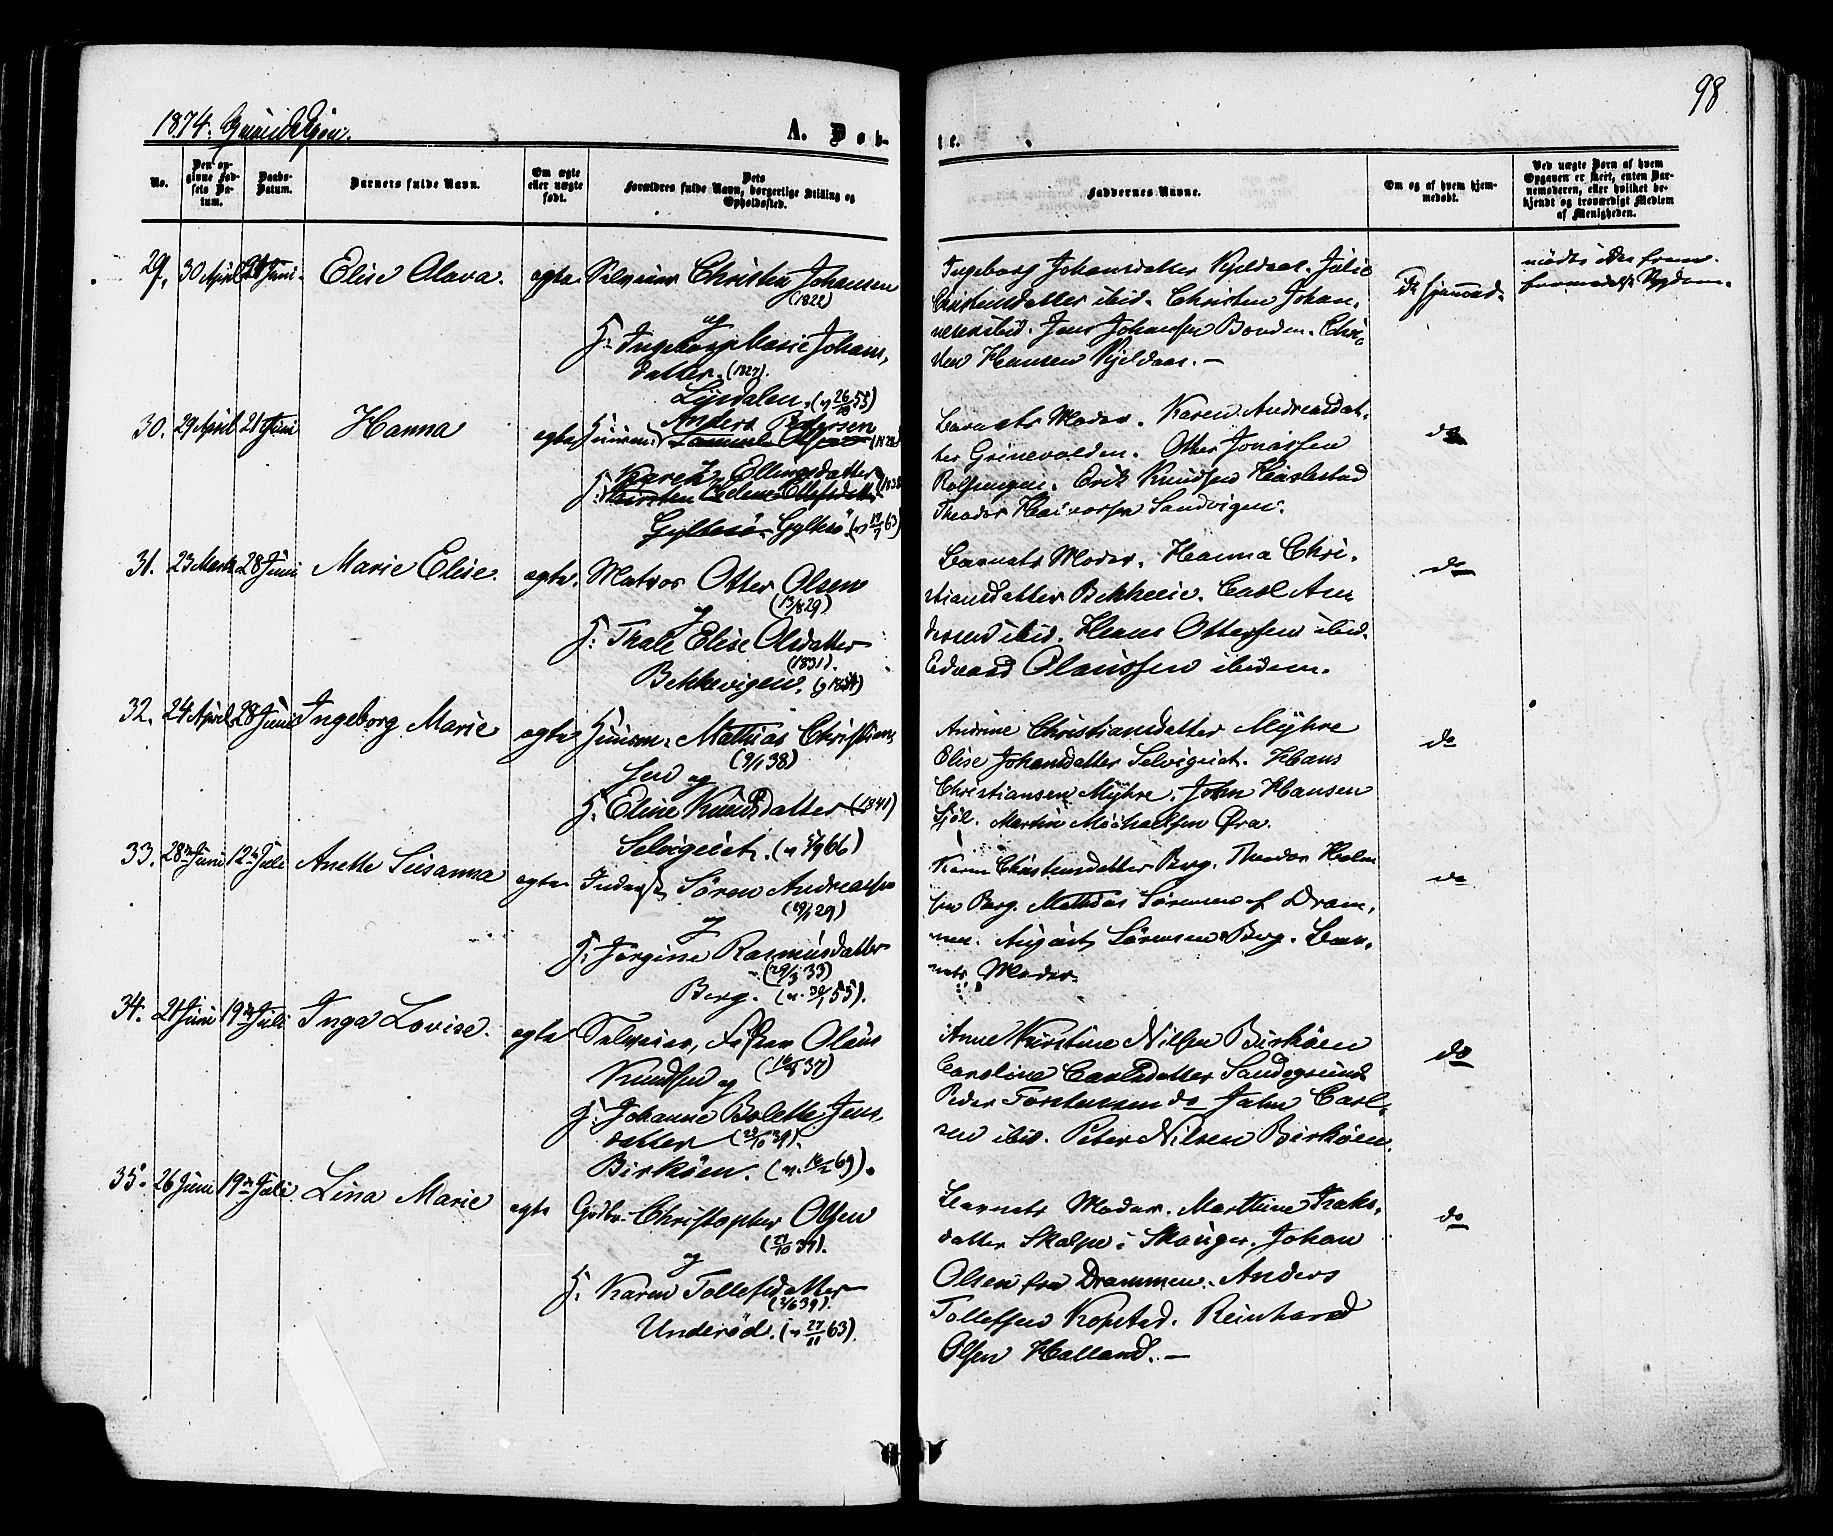 98
1874.
A. Døb-
te.
No.
Den op-
givne Fød-
sels Da-
tum.
Daabs-
Datum.
Barnets fulde Navn.
Om ægte
eller uægte
født.
Dets
Forældres fulde Navn, borgerlige Stilling og
Opholdssted.
Faddernes Navne.
Om og af hvem hjem-
medøbt.
Ved uægte Børn af hvem
Opgaven er skeet, enten Bar-
nemoderen, eller hvilket be-
kjendt og troværdigt Medlem
af Menigheden.
29. 30 April 21 Juni Elise Olava. ægte Selveier Christen Johansen
(1822)
og
H. Ingeborg Marie Johans-
datter. (1827).
(v 26/10 53)
Ingeborg Johansdatter Kjeldaas. Julie
Christensdatter ibid. Christen Johan-
nesen ibid. Jens Johansen Bonden. Chri-
sten Hansen Kjeldaas. —
Ei hjemmed.
30. 29 April 21 Juni Hanna ægte Huusm. Anders Pedersen
Samuel Olsen (1828)
Karen Ellingsdatter
H. Kirsten Helene Ellefsdatter (1838
Gyltesø Gyltesø (v 12/7 63)
Barnets Moder. Karen Andreasdat-
ter Grinevolden. Otter Jonassen
Rolfsengen. Erik Knudsen Haslestad
Theodor Halvorsen Sandvigen.
do
31. 23 Marts 28 Juni Marie Elise. ægte. Matros Otter Olsen
(13/8 29)
og
H. Thale Elise Olsdatter
(1831)
Bekkevigen.
Barnets Moder. Hanna Chri-
stiansdatter Bekkevig. Carl An-
dersen ibid. Hans Ottersen ibid.
Edvard Olaussen ibidem.
do
32. 24 April 28 Juni Ingeborg Marie ægte Huusm. Mathias Christian-
(9/1 38)
sen og
H. Eline Knudsdatter (1841)
Selvigeiet.
Andrine Christiansdatter Myhre
Elise Johansdatter Selvigeiet. Hans
Christiansen Myhre. John Hansen
Sjøl. Martin Michaelsen Øra.
do
33. 28de Juni 12te Juli Anette Susanna ægte Inderst Søren Andreassen
og
H. Jørgine Rasmusdatter
Berg. (v. 30/1 55).
Karen Christensdatter Berg. Theodor Holm
sen Berg. Mathias Sørensen af Dram-
men. August Sørensen Berg. Bar-
nets Moder.
do
34. 21 Juni 19de Juli Inga Lovise. ægte Selveier, Fisker Olaus
Knudsen og
H. Johanne Bolette Jens-
datter
Birkøen.
Anne Kirstine Nilsen Birkøen
Caroline Carlsdatter Sandegrund
Peder Torstensen do John Carl-
sen ibid. Peter Nilsen Birkøen.
do
35. 26 Juni 19de Juli Lina Marie ægte Gdbr. Christopher Olsen
og
H. Karen Tollefsdatter
(2/6 39).
Underød. (v 27/11 63).
Barnets Moder. Marthine Iraks-
datter Skalpe i Skouger. Johan
Olsen fra Drammen. Anders
Tollefsen Kopstad. Reinhard
Olsen Holland. —
do